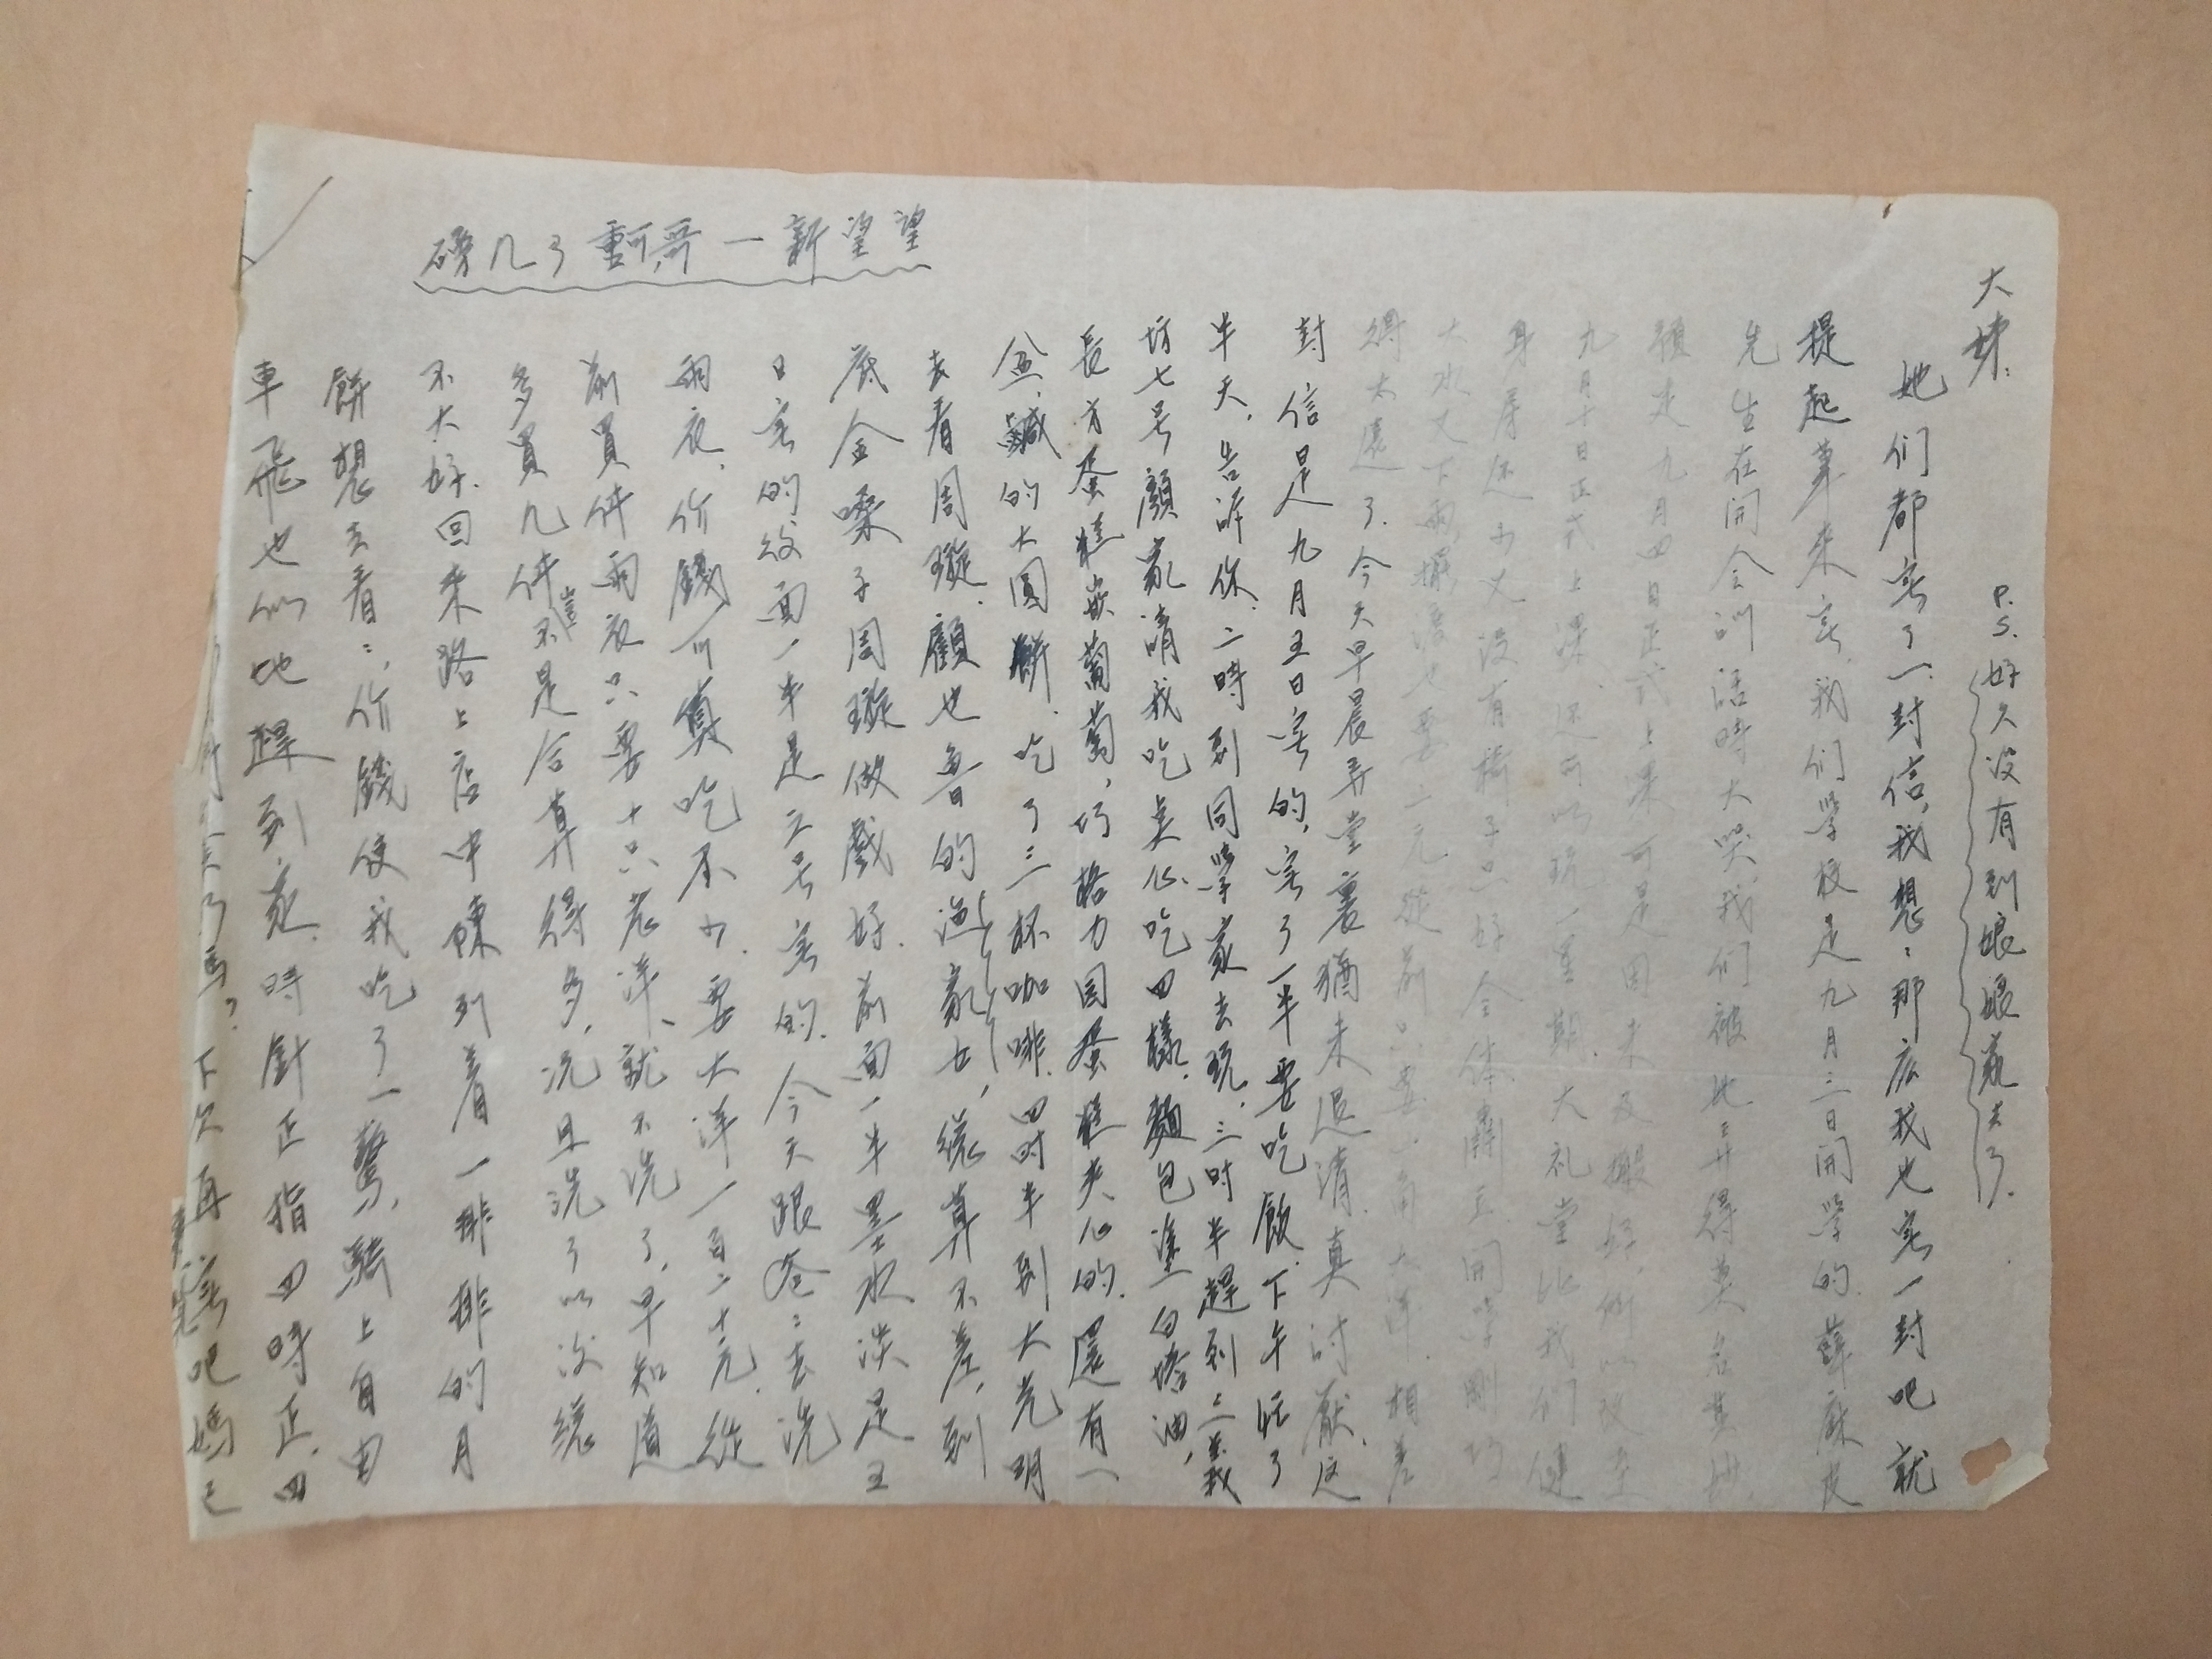 大姊：
P.S.好久没有到娘娘家去了．
她们都寄了一封信，我想：那広我也寄一封吧就
提起筆來寫，我们学校是九月三日開学的．薛麻皮
先生在開会訓話時大哭，我们被她弄得莫名其妙
九月四日正式上课可是因未及搬好，所以改至
九月十日正式上课．还可以玩一星期．大礼堂比我们健
身房还小又没有椅子只好全体罰立．開学剛巧
大水又下雨擺渡也要二元從前只要一角大洋．相差
得太遠了．今天早晨弄堂裏猶未退清．真討厭．这
封信是九月五日寄的，寄了一半要吃飯．下午好了
半天．告訴你：二時到同学家去玩，三时半趕到三義
坊七号顏家請我吃点心．吃四樣．麵包塗白塔油，
長方蛋糕嵌葡萄，巧格力国蛋糕夹心的．還有一
盆．鹹的大圓餅．吃了三杯咖啡．四时半到大光明
去看周璇．顧也魯的漁家女，總算不差，到
底金嗓子周璇做戲好．前面一半墨水淡是五
日寄的後面一半是六号寄的．今天跟爸：去洗
雨衣．价錢可真吃不小．要大洋一百二十元．從
前買件雨衣只要十只老洋、就不洗了，早知道
多買九件豈不是合算得多，况且洗了以後總
不大好．回來路上店中陳列着一排排的月
餅想去看：，价錢使我吃了一驚，騎上自由
車飛也似地趕到家．時針正指四時正．四
下欠再寫吧媽已
磅几了 重阿哥 一新 望望